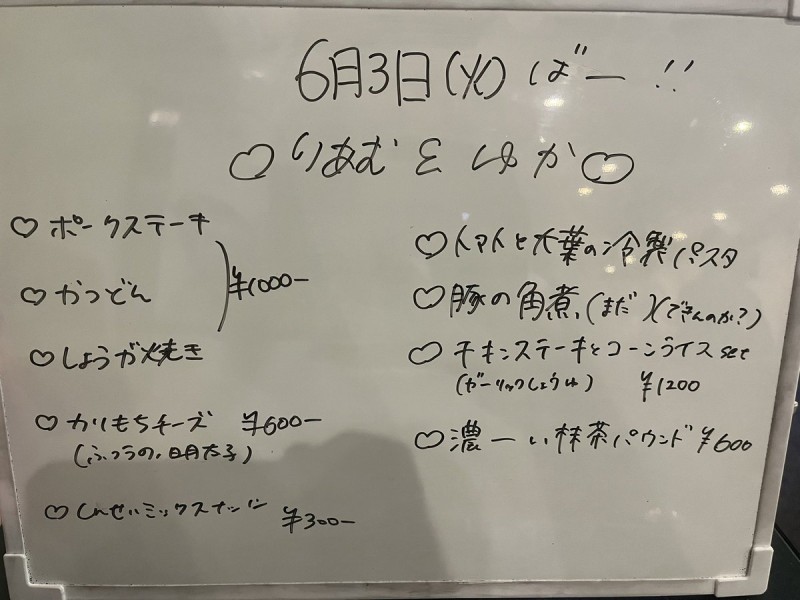 6月3日(火) ばー!!
♡りあむ & ゆか♡
♡ポークステーキ
♡かつどん
¥1000-
♡しょうが焼き
♡カリもちチーズ ¥600-
(ふつうの, 明太子)
♡しんせいミックスナッツ
¥300-
♡トマトと大葉の冷製パスタ
♡豚の角煮, (まだ)(できんのか?)
♡チキンステーキとコーンライス set
(ガーリックしょうゆ) ¥1200
♡濃ーい抹茶パウンド ¥600